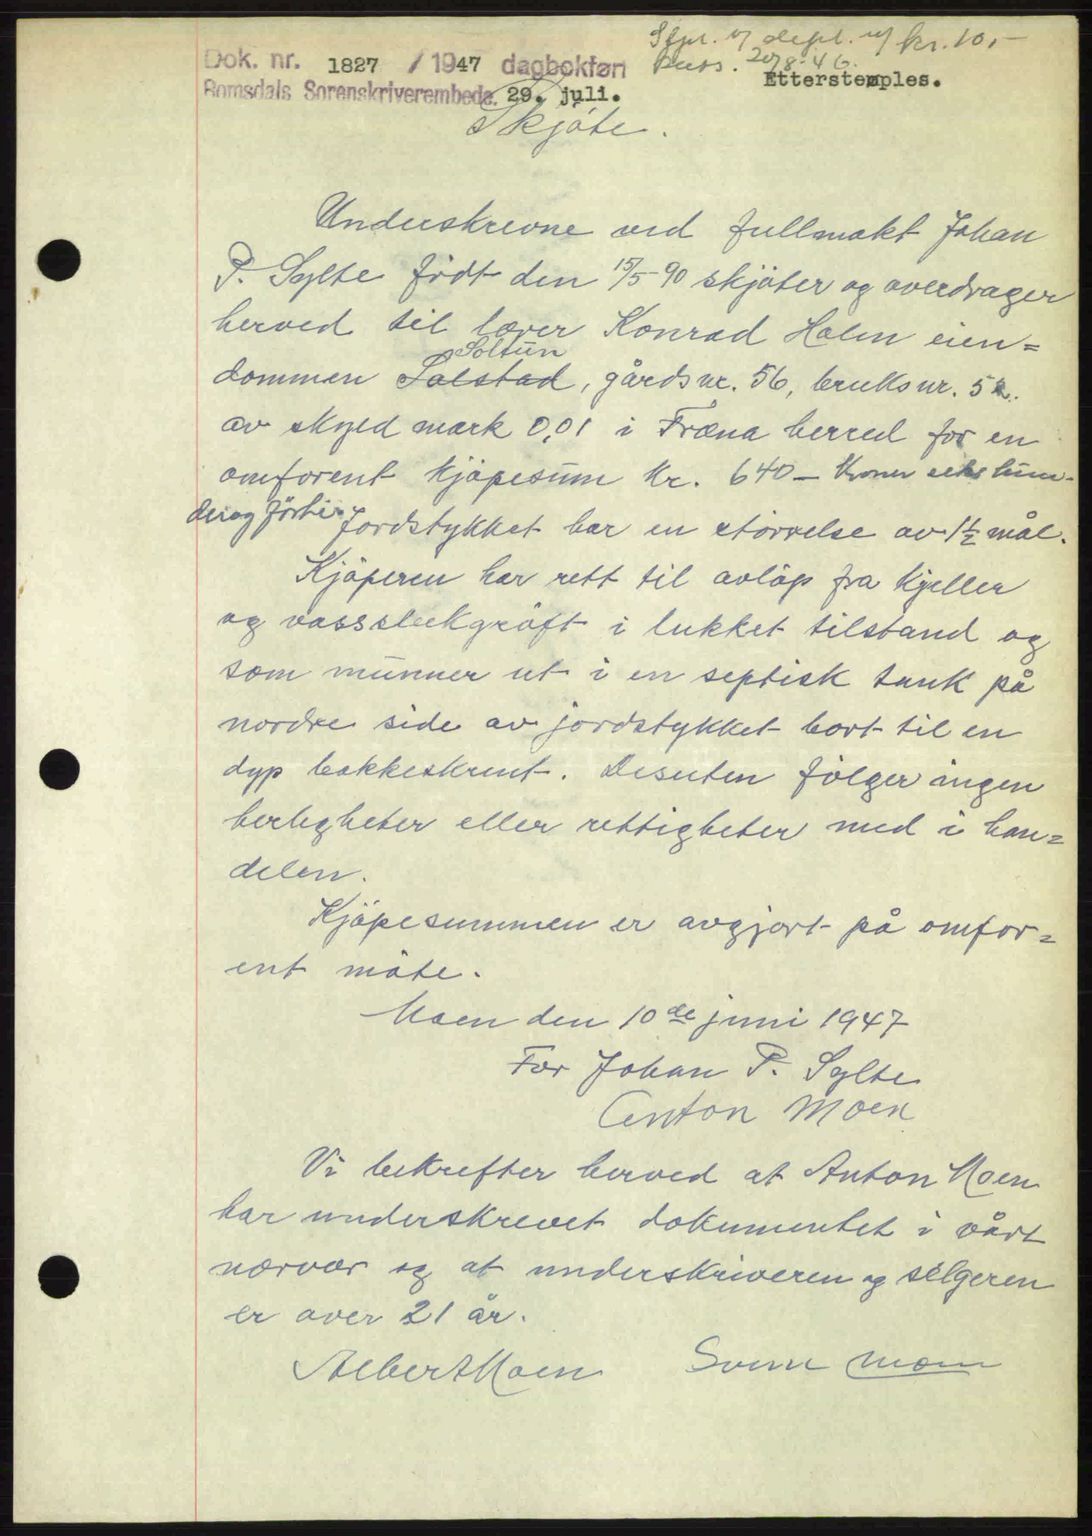 Stpl. v/ depl. m/ kr. 10,-
Dok. nr. 1827 / 1947 dagbokført
20/8-46.
Etterstemples.
Romsdals Sorenskriverembede. 29. juli.
Skjöte.
Underskrevne ved fullmakt Johan
P. Sylte födt den 15/5-90 skjöter og overdrager
herved til lærer Konrad Holm eien=
Soltün
dommen Solstad, gårdsnr. 56, bruksnr. 52.
av skyld mark 0,01 i Fræna herred for en
omforent kjöpesüm kr. 640- Kroner seks hün-
derog förti. Jordstykket har en störrelse av 1½ mål.
Kjöperen har rett til avlöp fra kjeller
og vassslukgröft i lukket tilstand og
som münner ut i en septisk tank på
nordre side av jordstykket bort til en
dyp bakkeskrent. Desuten fölger ingen
herligheter eller rettigheter med i han=
delen.
Kjöpesummen er avgjort på omfor=
ent måte.
Moen den 10de juni 1947
For Johan P. Sylte
Anton Moen
Vi bekrefter herved at Anton Moen
har underskrevet dokumentet i vårt
nærvær og at underskriveren og selgeren
er over 21 år.
Albert Moen Svein Moen